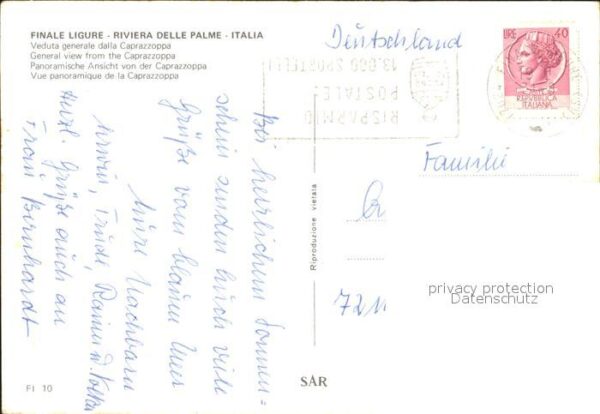 FINALE LIGURE - RIVIERA DELLE PALME - ITALIA
Veduta generale dalla Caprazzoppa
General view from the Caprazzoppa
Panoramische Ansicht von der Caprazzoppa
Vue panoramique de la Caprazzoppa
Deutschland
LIRE 40
REPUBBLICA
ITALIANA
RISPARMIO
POSTALE:
13.000 SPORTELLI
Bei herrlichem Sonnen=
schein senden Euch viele
Grüße vom blauen Meer
Eure Nachbarn
Erwin, Trude, Rainer u. Volker
Herzl. Grüße auch an
Frau Bernhardt
Riproduzione vietata
Familie
721
privacy protection
Datenschutz
FI 10
SAR